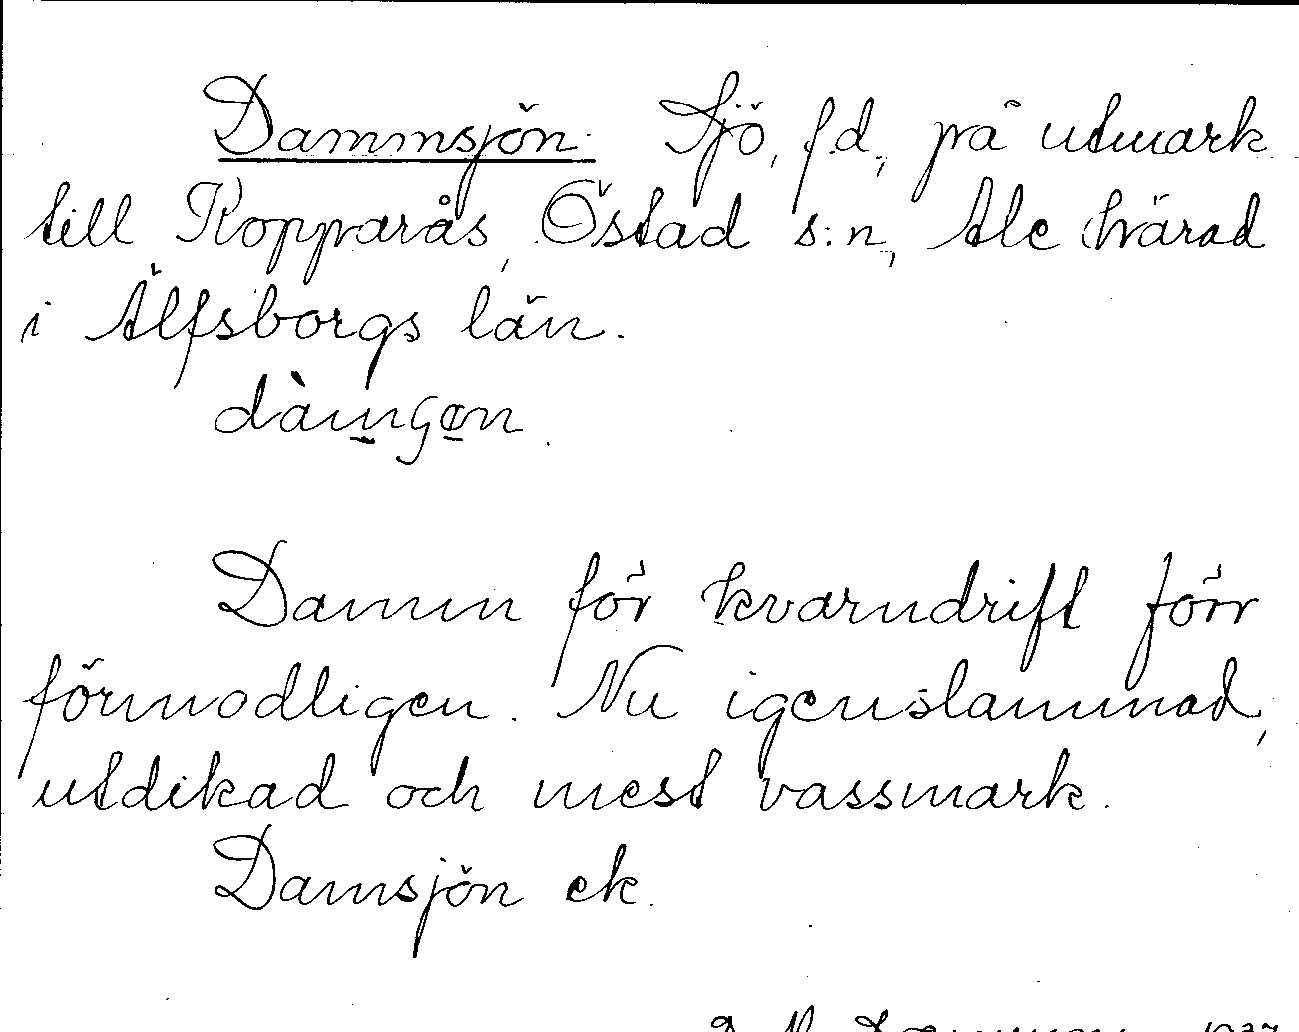 Dammsjön. Sjö, f.d., på utmark
till Kopparås, Östad s:n, Ale härad
i Älfsborgs län.
Damm för kvarndrift förr
förmodligen. Nu igenslammad,
utdikad och mest vassmark.
Damsjön ek.